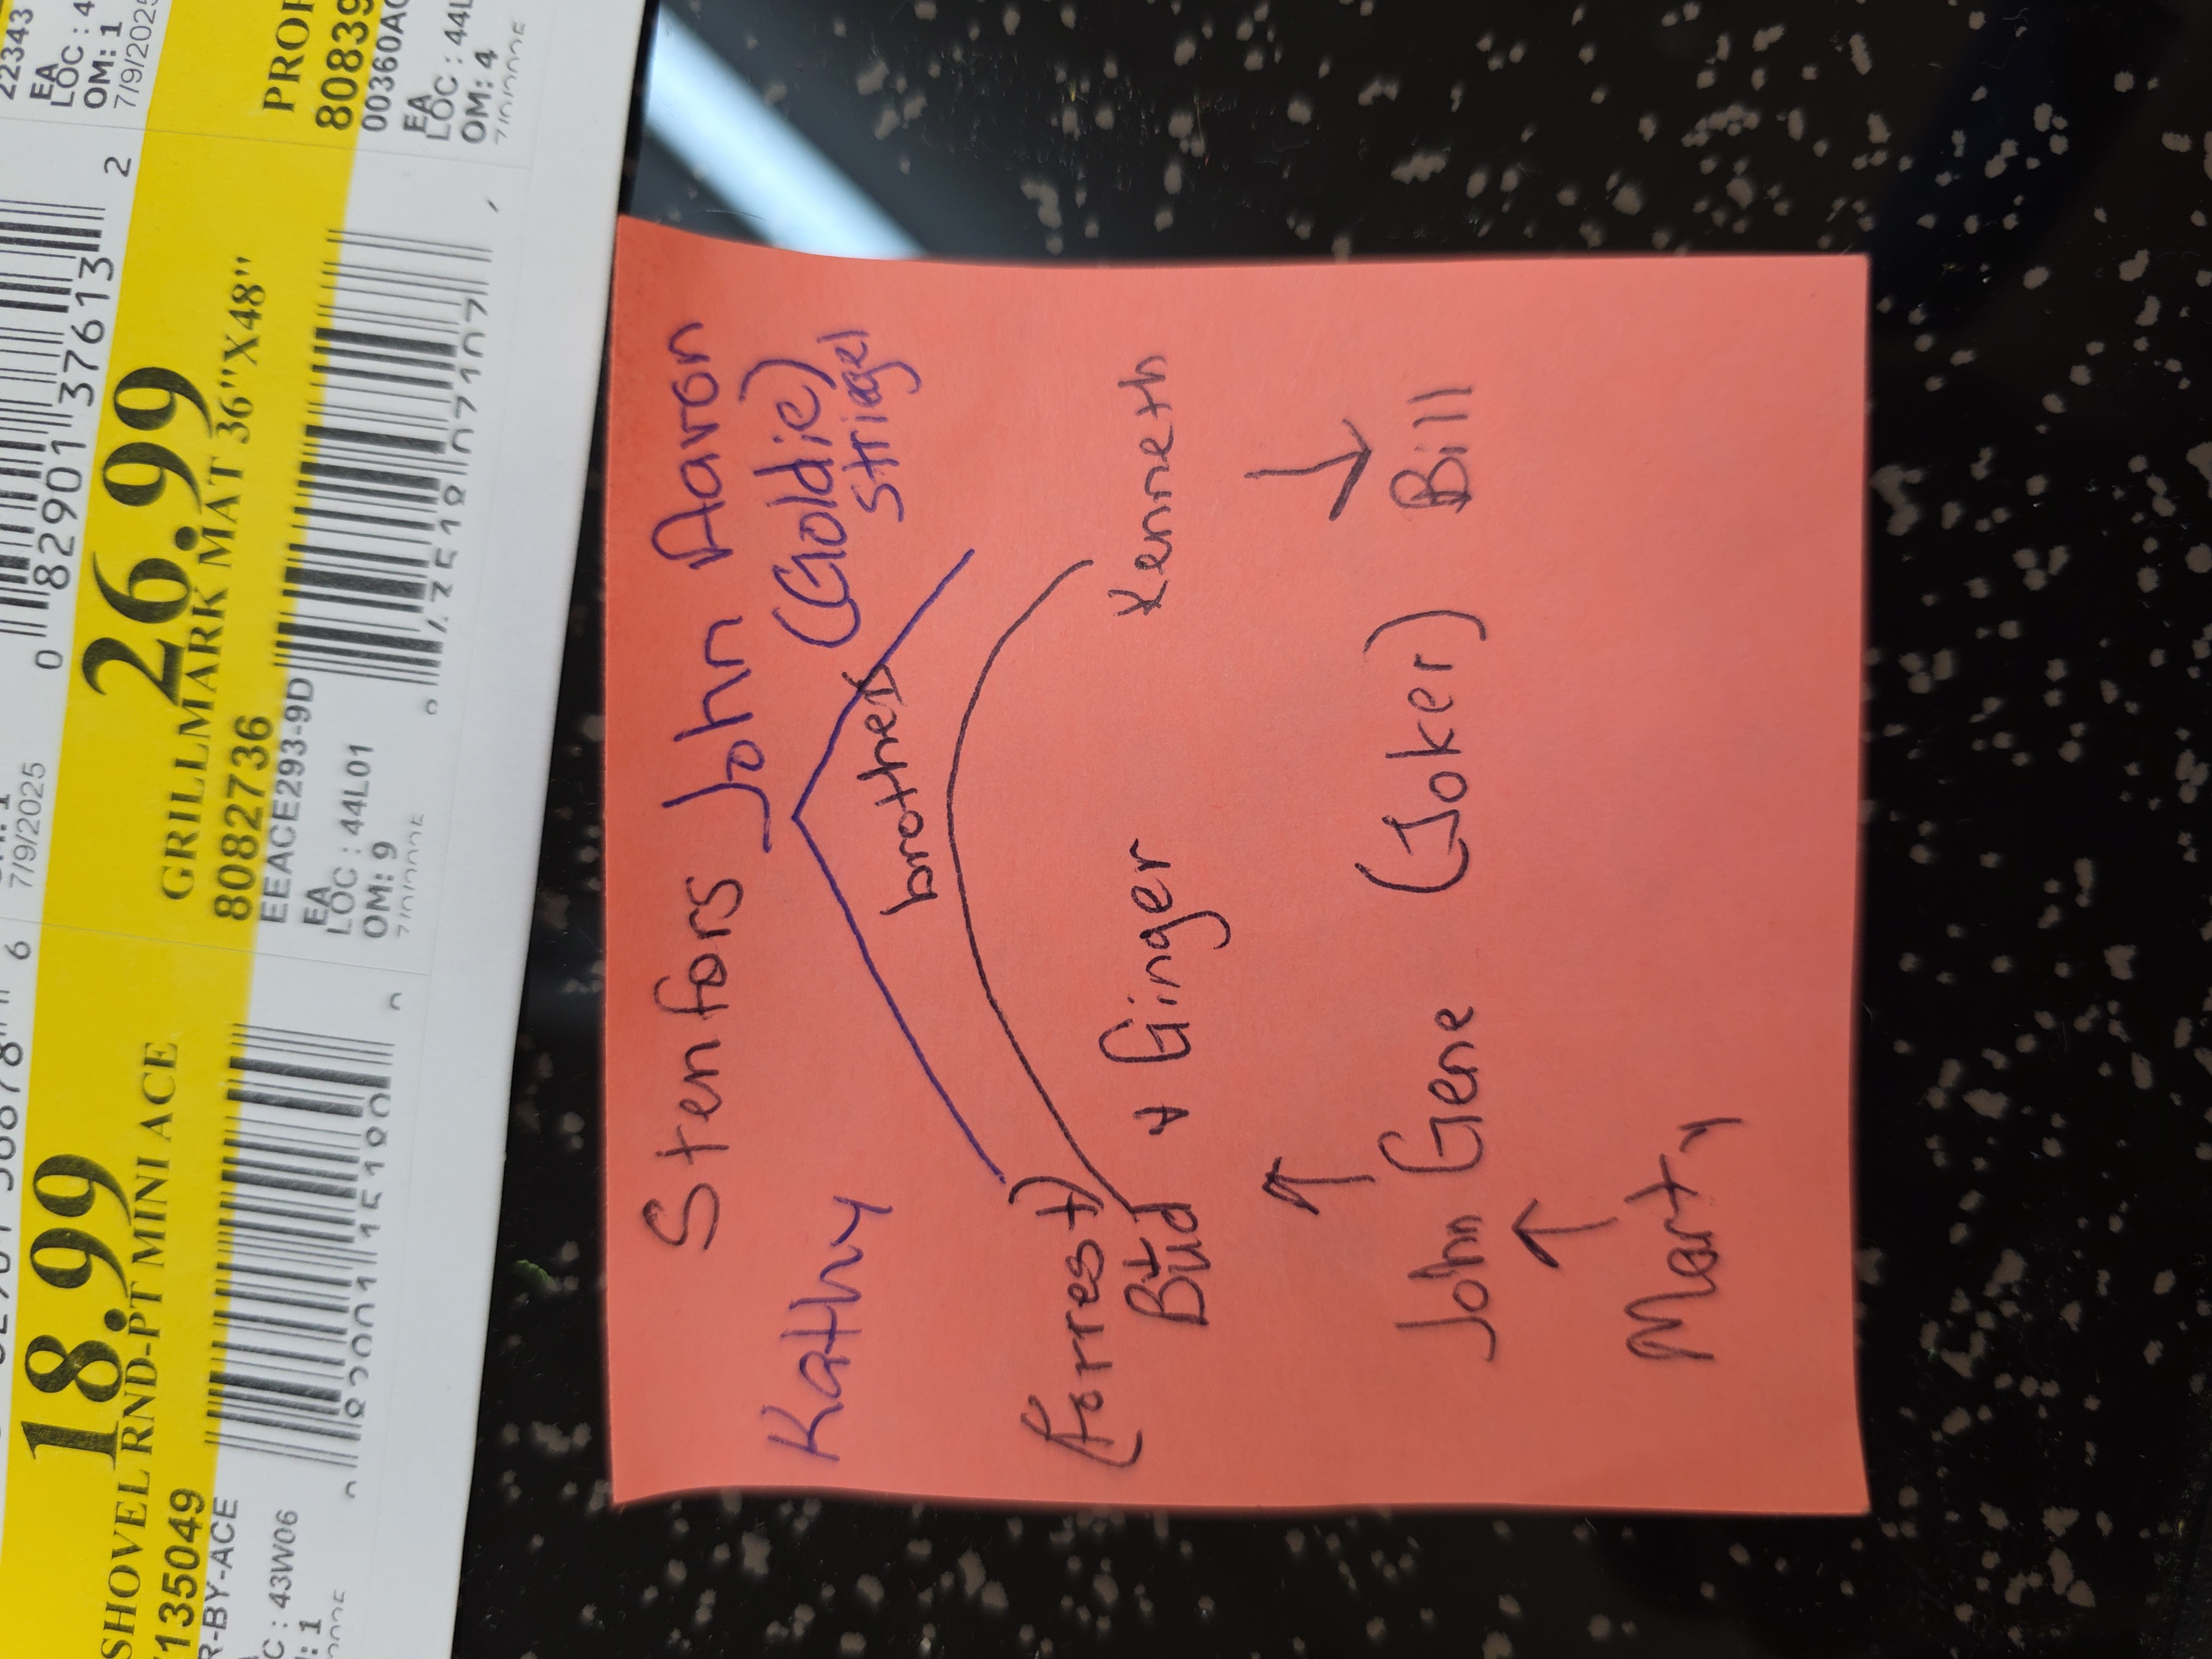 Stenfors John Aaron
Kathy (Goldie)
Striegel
brothers
(Forrest)
Bud + Ginger Kenneth
John Gene (Joker) Bill
Marty
22343
EA
LOC : 4
OM: 1
7/9/2025
PROF
80839
00360AC
EA
LOC : 44L
OM: 4
0 82901 37613 2
26.99
GRILLMARK MAT 36"X48"
8082736
EEACE293-9D
EA
LOC : 44L01
OM: 9
7/9/2025
18.99
SHOVEL RND-PT MINI ACE
7135049
R-BY-ACE
C : 43W06
: 1